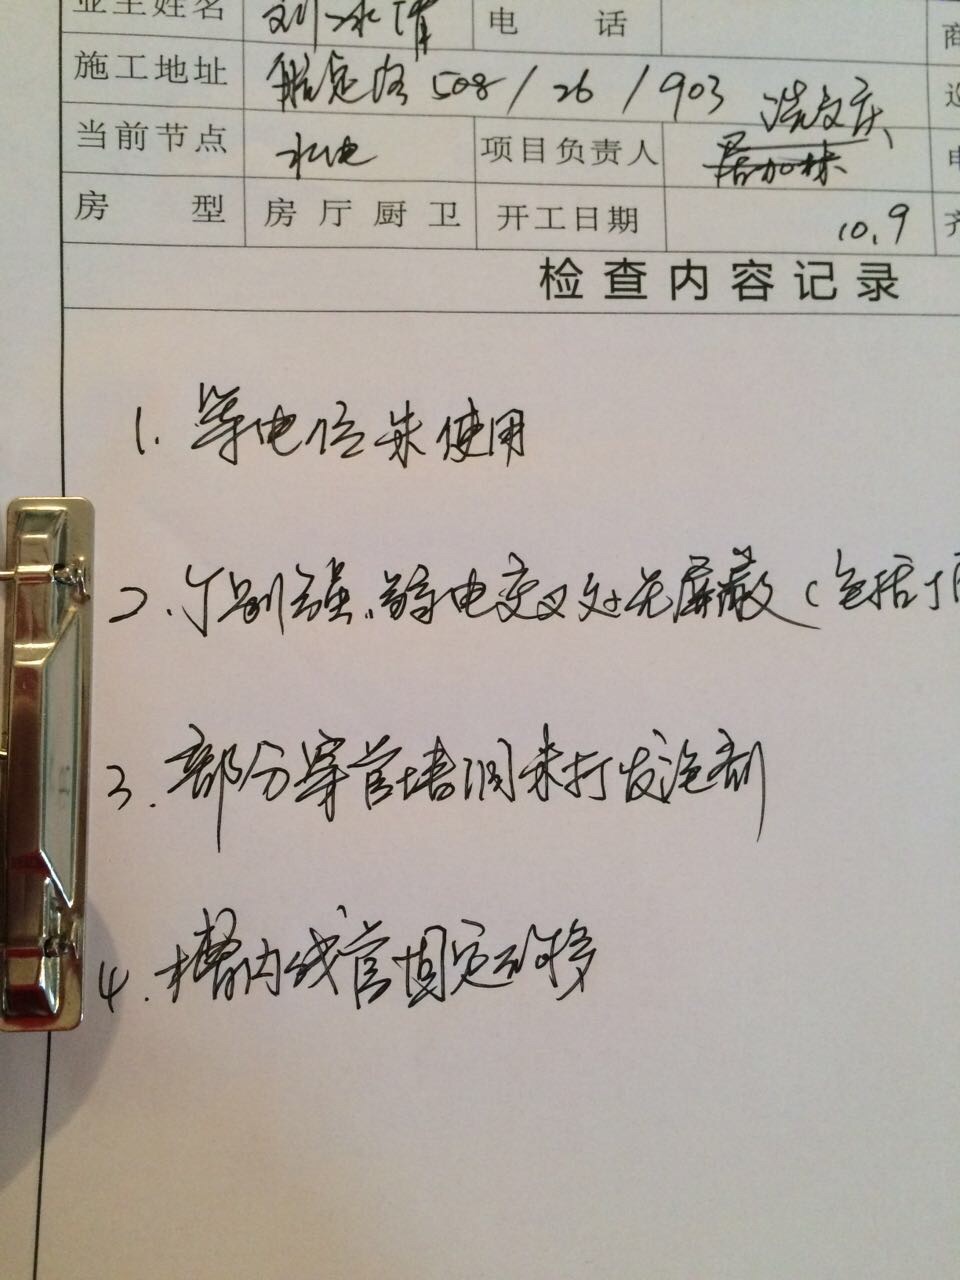 业主姓名 刘冰清 电话 商
施工地址 航定路 508/26/903 巡
当前节点 水电 项目负责人 电
房型 房厅厨卫 开工日期 10.9 齐
检查内容记录
1. 等电位未使用
2. 个别强.弱电交叉处无屏蔽(包括顶
3. 部分穿管墙洞未打发泡剂
4. 槽内线管固定不够